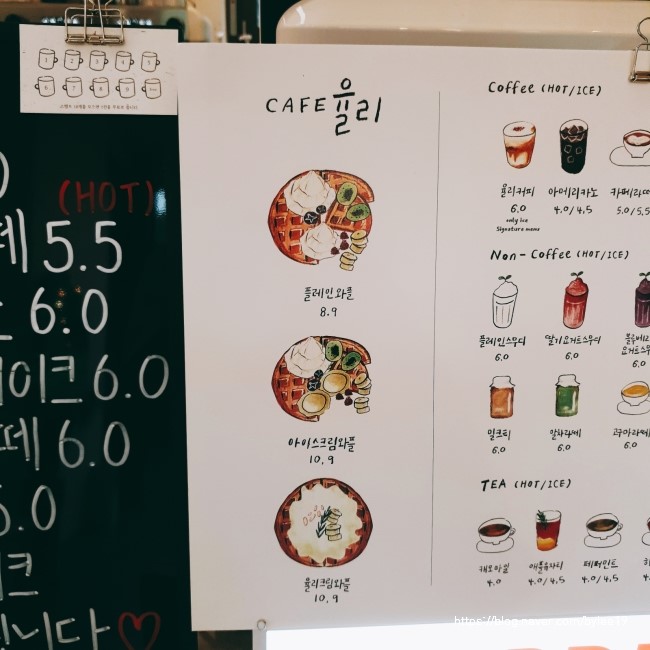 1 2 3 4 5
6 7 8 9
(HOT)
5.5
6.0
이크 6.0
6.0
5.0
크
니다♡
CAFE 율리
플레인와플
8.9
아이스크림와플
10.9
율리크림와플
10.9
Coffee (HOT/ICE)
율리커피 아메리카노 카페라떼
6.0 4.0/4.5 5.0/5.5
only ice
Signature menu
Non-Coffee (HOT/ICE)
플레인스무디 딸기요거트스무디 블루베리
요거트스무디
6.0 6.0 6.0
밀크티 말차라떼 고구마라떼
6.0 6.0 6.0
TEA (HOT/ICE)
캐모마일 애플유자티 페퍼민트
4.0 4.0/4.5 4.0/4.5